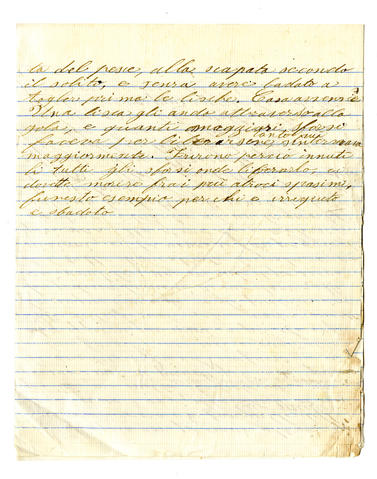 ta del pesce, alla scapata secondo
il solito, e senza avere badato a
toglier prima le lische. Cosa avvenne?
Una lisca gli andò attraverso alla
gola, e quanti maggiori sforzi
faceva per liberarsene, tanto più s'internava
maggiormente. Furono perciò inuti
li tutti gli sforzi onde liberarlo, e
dovette morire fra i più atroci spasimi,
funesto esempio per chi è irrequieto
e sbadato